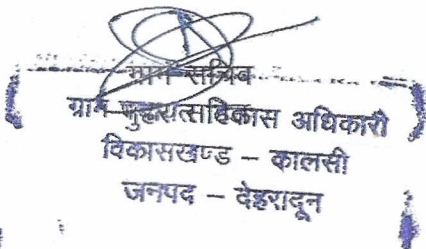 ग्राम सचिव
ग्राम विकास अधिकारी
विकासखण्ड – कालसी
जनपद – देहरादून